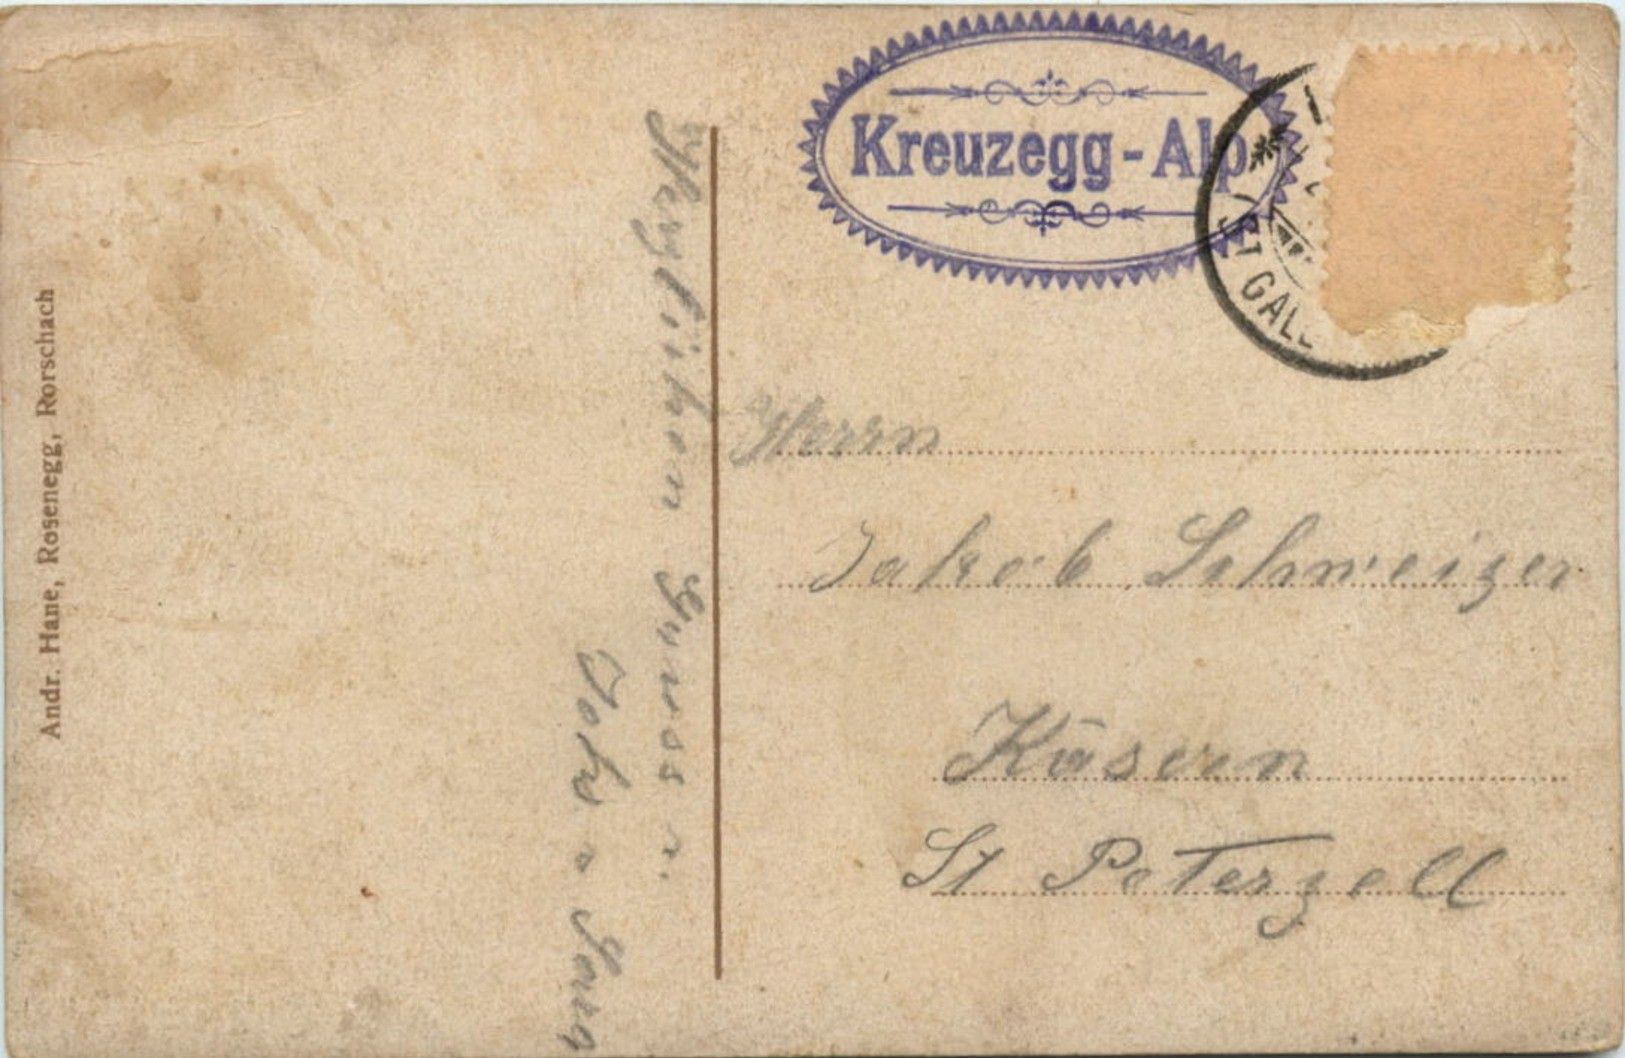 Andr. Hane, Rosenegg, Rorschach
Kreuzegg-Alp.
(ST GALL
Herrn
Jakob Schweizer
Käsern
St Peterzell
Herzlichen Gruss v.